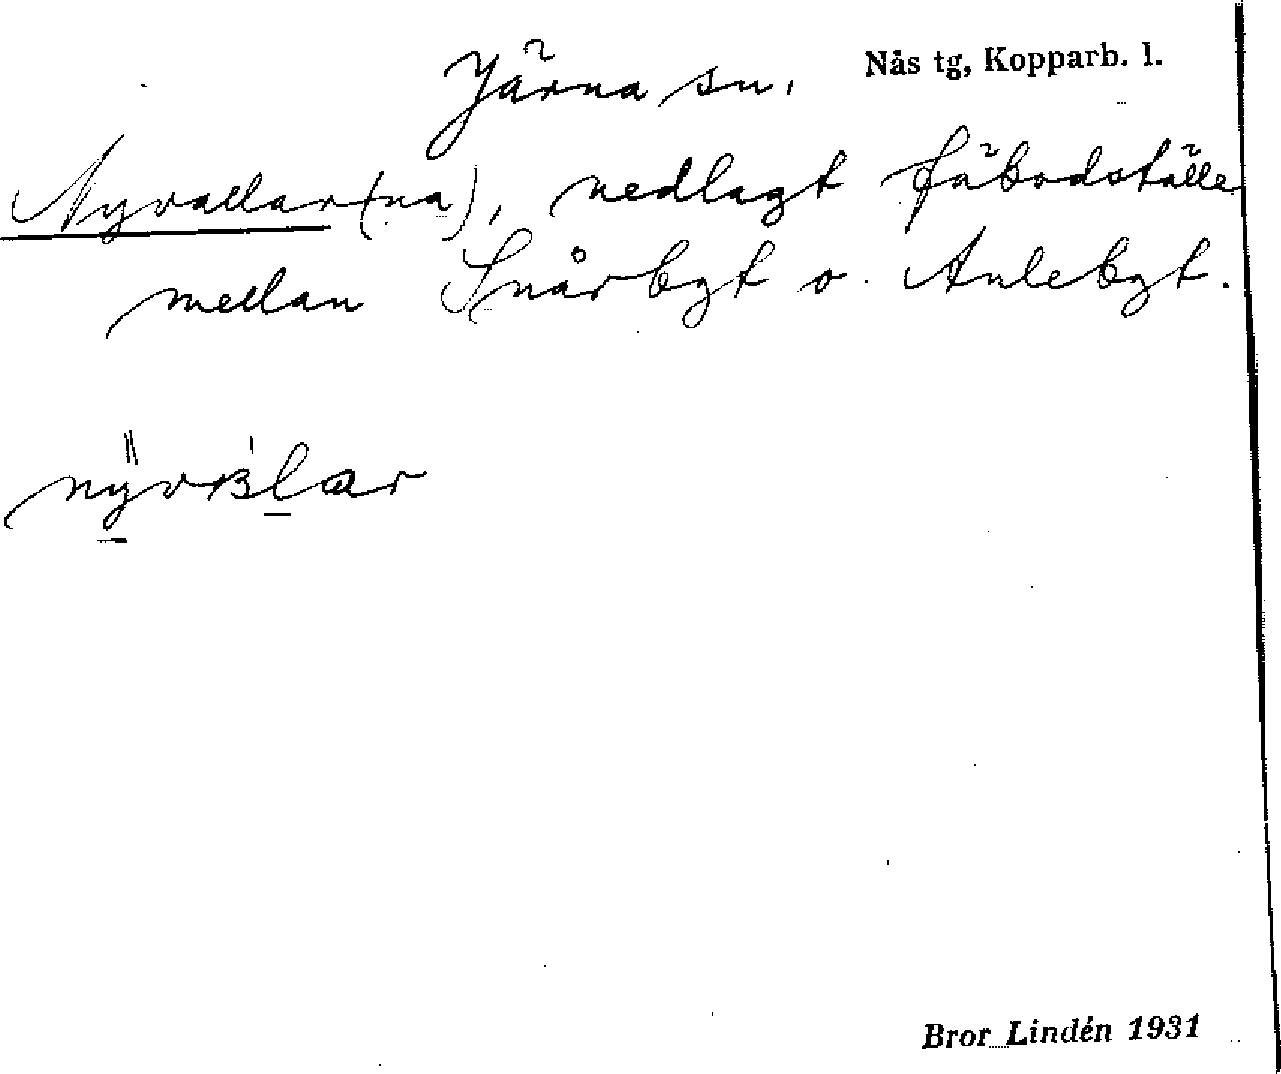 Järna sn. Nås tg, Kopparb. l.
Nyvallar(na), nedlagt fäbodställe
mellan Snårbgt o. Anlebgt.
Bror Lindén 1931